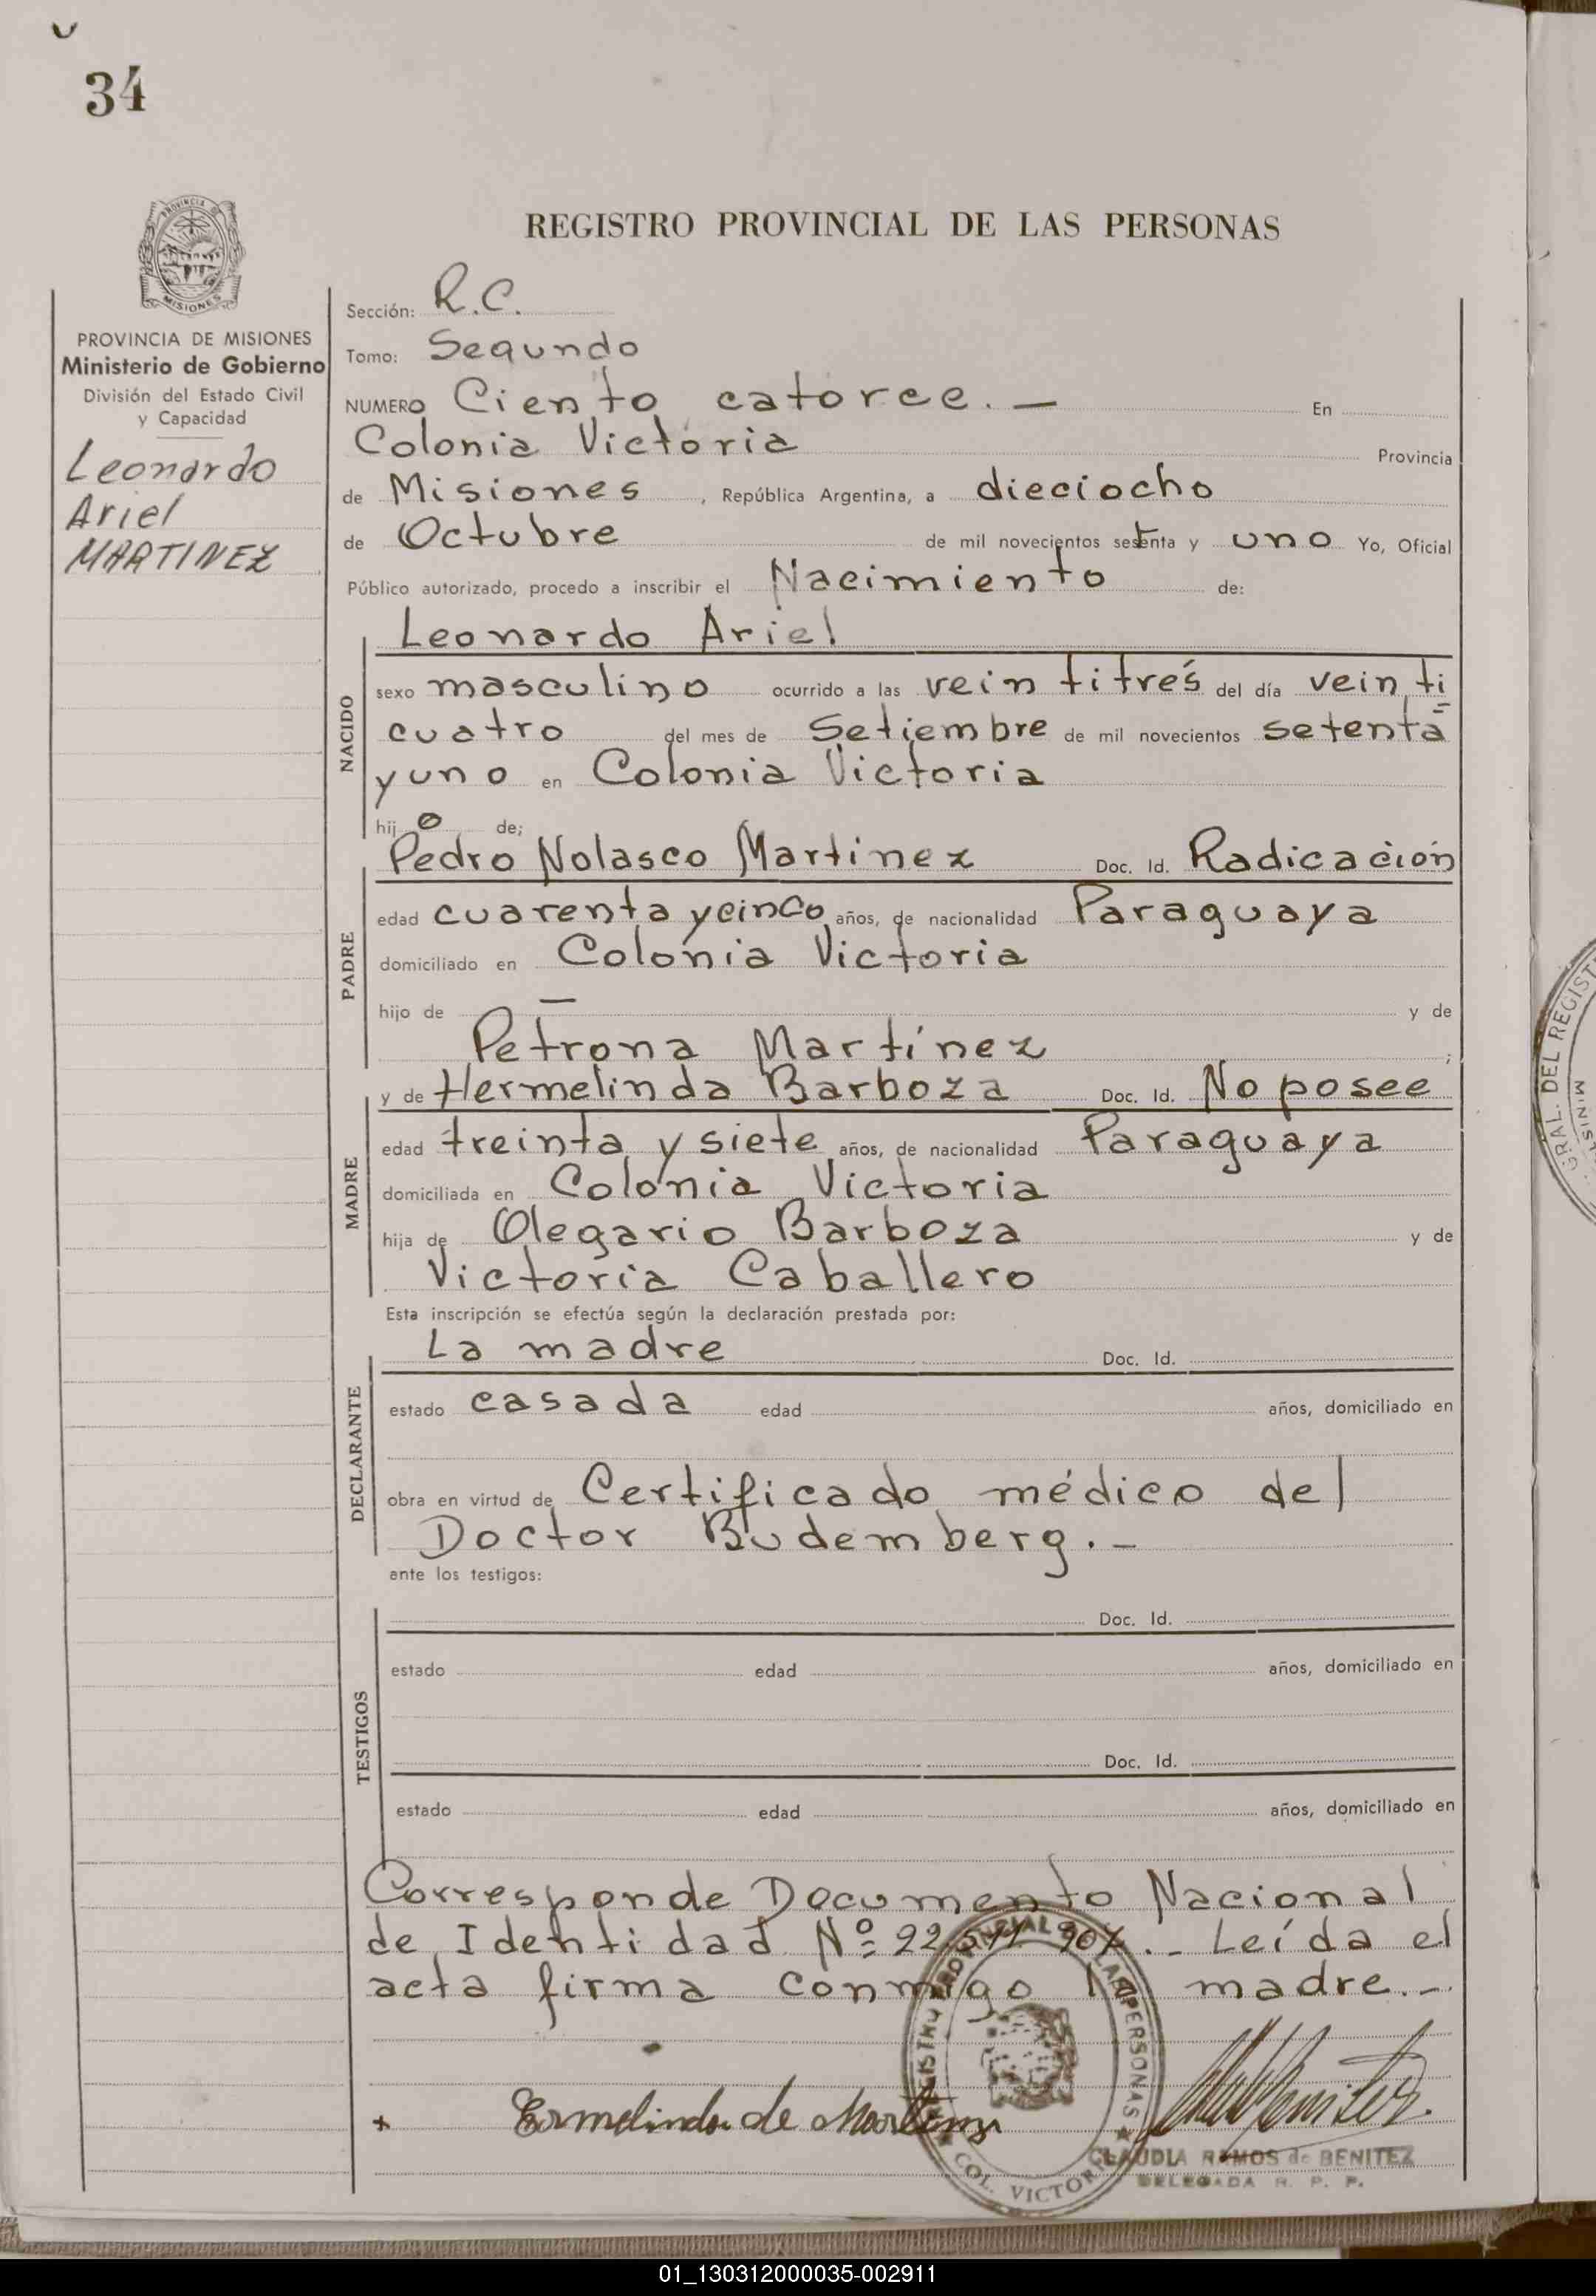 34
PROVINCIA
MISIONES
PROVINCIA DE MISIONES
Ministerio de Gobierno
División del Estado Civil
y Capacidad
Leonardo
Ariel
MARTINEZ
REGISTRO PROVINCIAL DE LAS PERSONAS
Sección: R.C.
Tomo: Segundo
NUMERO Ciento catorce. — En
Colonia Victoria Provincia
de Misiones , República Argentina, a dieciocho
de Octubre de mil novecientos setenta y uno Yo, Oficial
Público autorizado, procedo a inscribir el Nacimiento de:
Leonardo Ariel
NACIDO
sexo masculino ocurrido a las veintitrés del día veinti
cuatro del mes de Setiembre de mil novecientos setenta
y uno en Colonia Victoria
hij o de;
Pedro Nolasco Martinez Doc. Id. Radicación
PADRE
edad cuarenta y cinco años, de nacionalidad Paraguaya
domiciliado en Colonia Victoria
hijo de — y de
Petrona Martínez ;
y de Hermelinda Barboza Doc. Id. No posee
MADRE
edad treinta y siete años, de nacionalidad Paraguaya
domiciliada en Colonia Victoria
hija de Olegario Barboza y de
Victoria Caballero
Esta inscripción se efectúa según la declaración prestada por:
La madre Doc. Id.
DECLARANTE
estado casada edad años, domiciliado en
obra en virtud de Certificado médico del
Doctor Budemberg. -
ante los testigos:
Doc. Id.
TESTIGOS
estado edad años, domiciliado en
Doc. Id.
estado edad años, domiciliado en
Corresponde Documento Nacional
de Identidad Nº 22 . - Leída el
acta firma conmigo la madre. -
+ Ermelinda de Martinez
COL. VICTORIA
CLAUDIA RAMOS de BENITEZ
DELEGADA R. P. P.
GRAL. DEL REGIST
MINIS
01_130312000035-002911